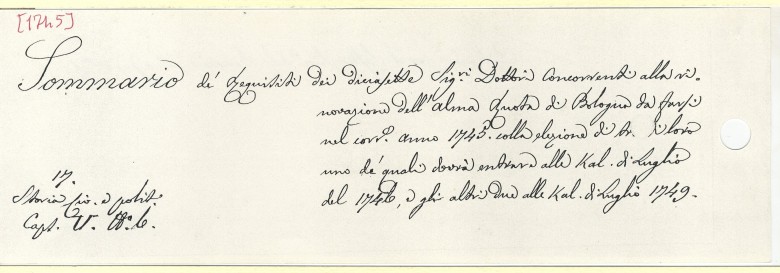 [1745]
Sommario de' Requisiti dei diciasette Sig.ri Dottori Concorrenti alla ri-
novazione dell'Alma Ruota di Bologna da farsi
nel corr.e anno 1745. colla elezione di tre di loro
uno de' quali dovrà entrare alle Kal. di Luglio
del 1746, e gli altri due alle Kal. di Luglio 1749.
17.
Storia civ. e polit.
Cart. V. N.o 6.